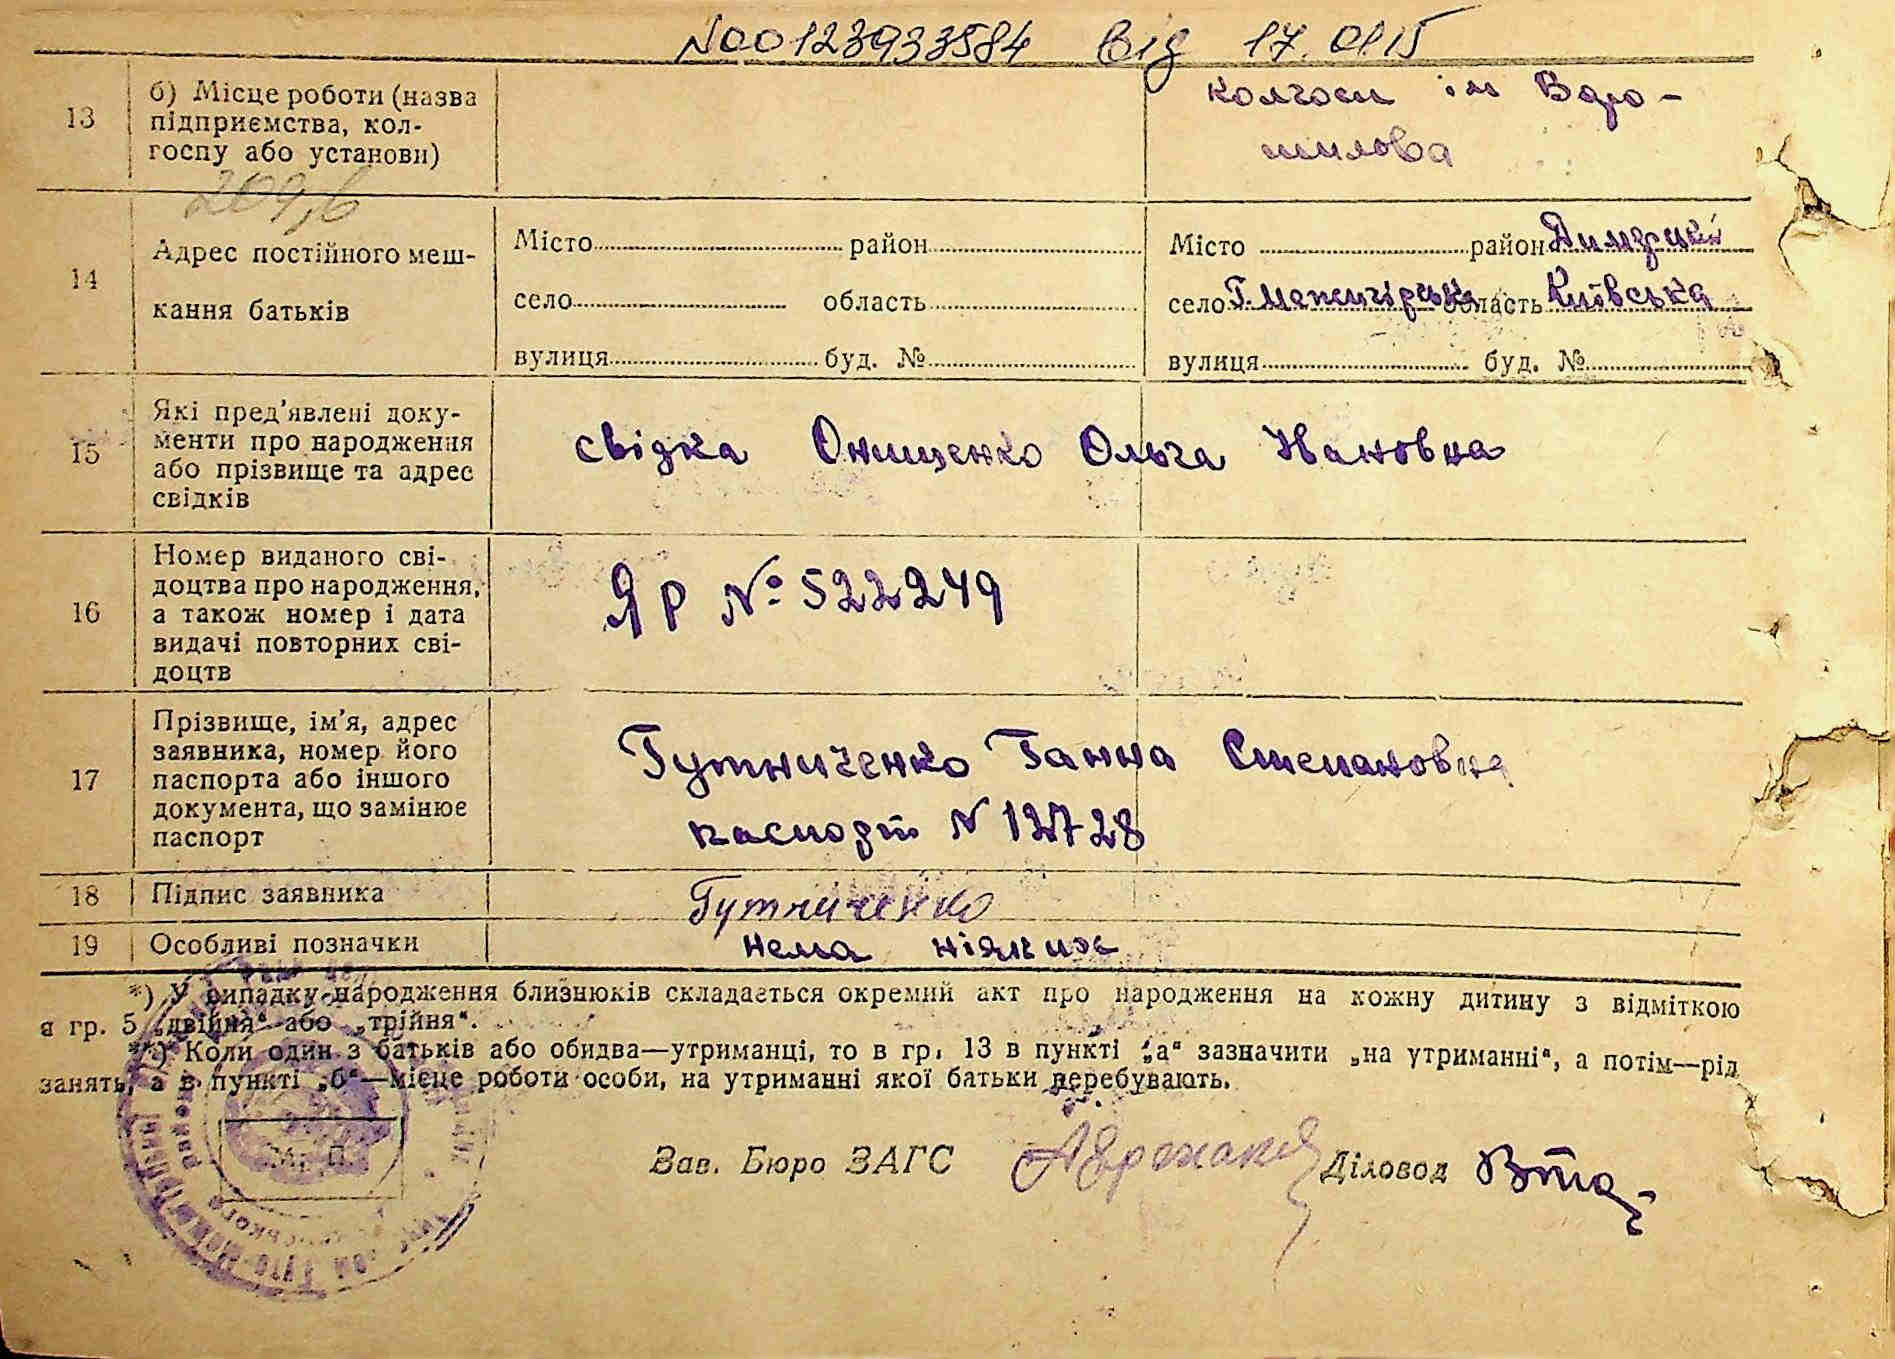 N00123933584 від 17.0115
13
б) Місце роботи (назва
підприємства, кол-
госпу або установи)
колгосп ім Воро-
шилова
209,6
14
Адрес постійного меш-
кання батьків
Місто район
село область
вулиця буд. №
Місто район Димерський
село Г. Межигірська область Київська
вулиця буд. №
15
Які пред'явлені доку-
менти про народження
або прізвище та адрес
свідків
свідка Онищенко Ольга Ивановна
16
Номер виданого сві-
доцтва про народження,
а також номер і дата
видачі повторних сві-
доцтв
ЯР № 522249
17
Прізвище, ім'я, адрес
заявника, номер його
паспорта або іншого
документа, що замінює
паспорт
Гутниченко Ганна Степановна
паспорт N 12728
18
Підпис заявника
Гутниченко
19
Особливі позначки
нема ніяких
*) У випадку народження близнюків складається окремий акт про народження на кожну дитину з відміткою
в гр. 5 „двійня“ або „трійня“.
**) Коли один з батьків або обидва—утриманці, то в гр. 13 в пункті „а“ зазначити „на утриманні“, а потім—рід
занять, а в пункті „б“—місце роботи особи, на утриманні якої батьки перебувають.
М. П.
Зав. Бюро ЗАГС Діловод